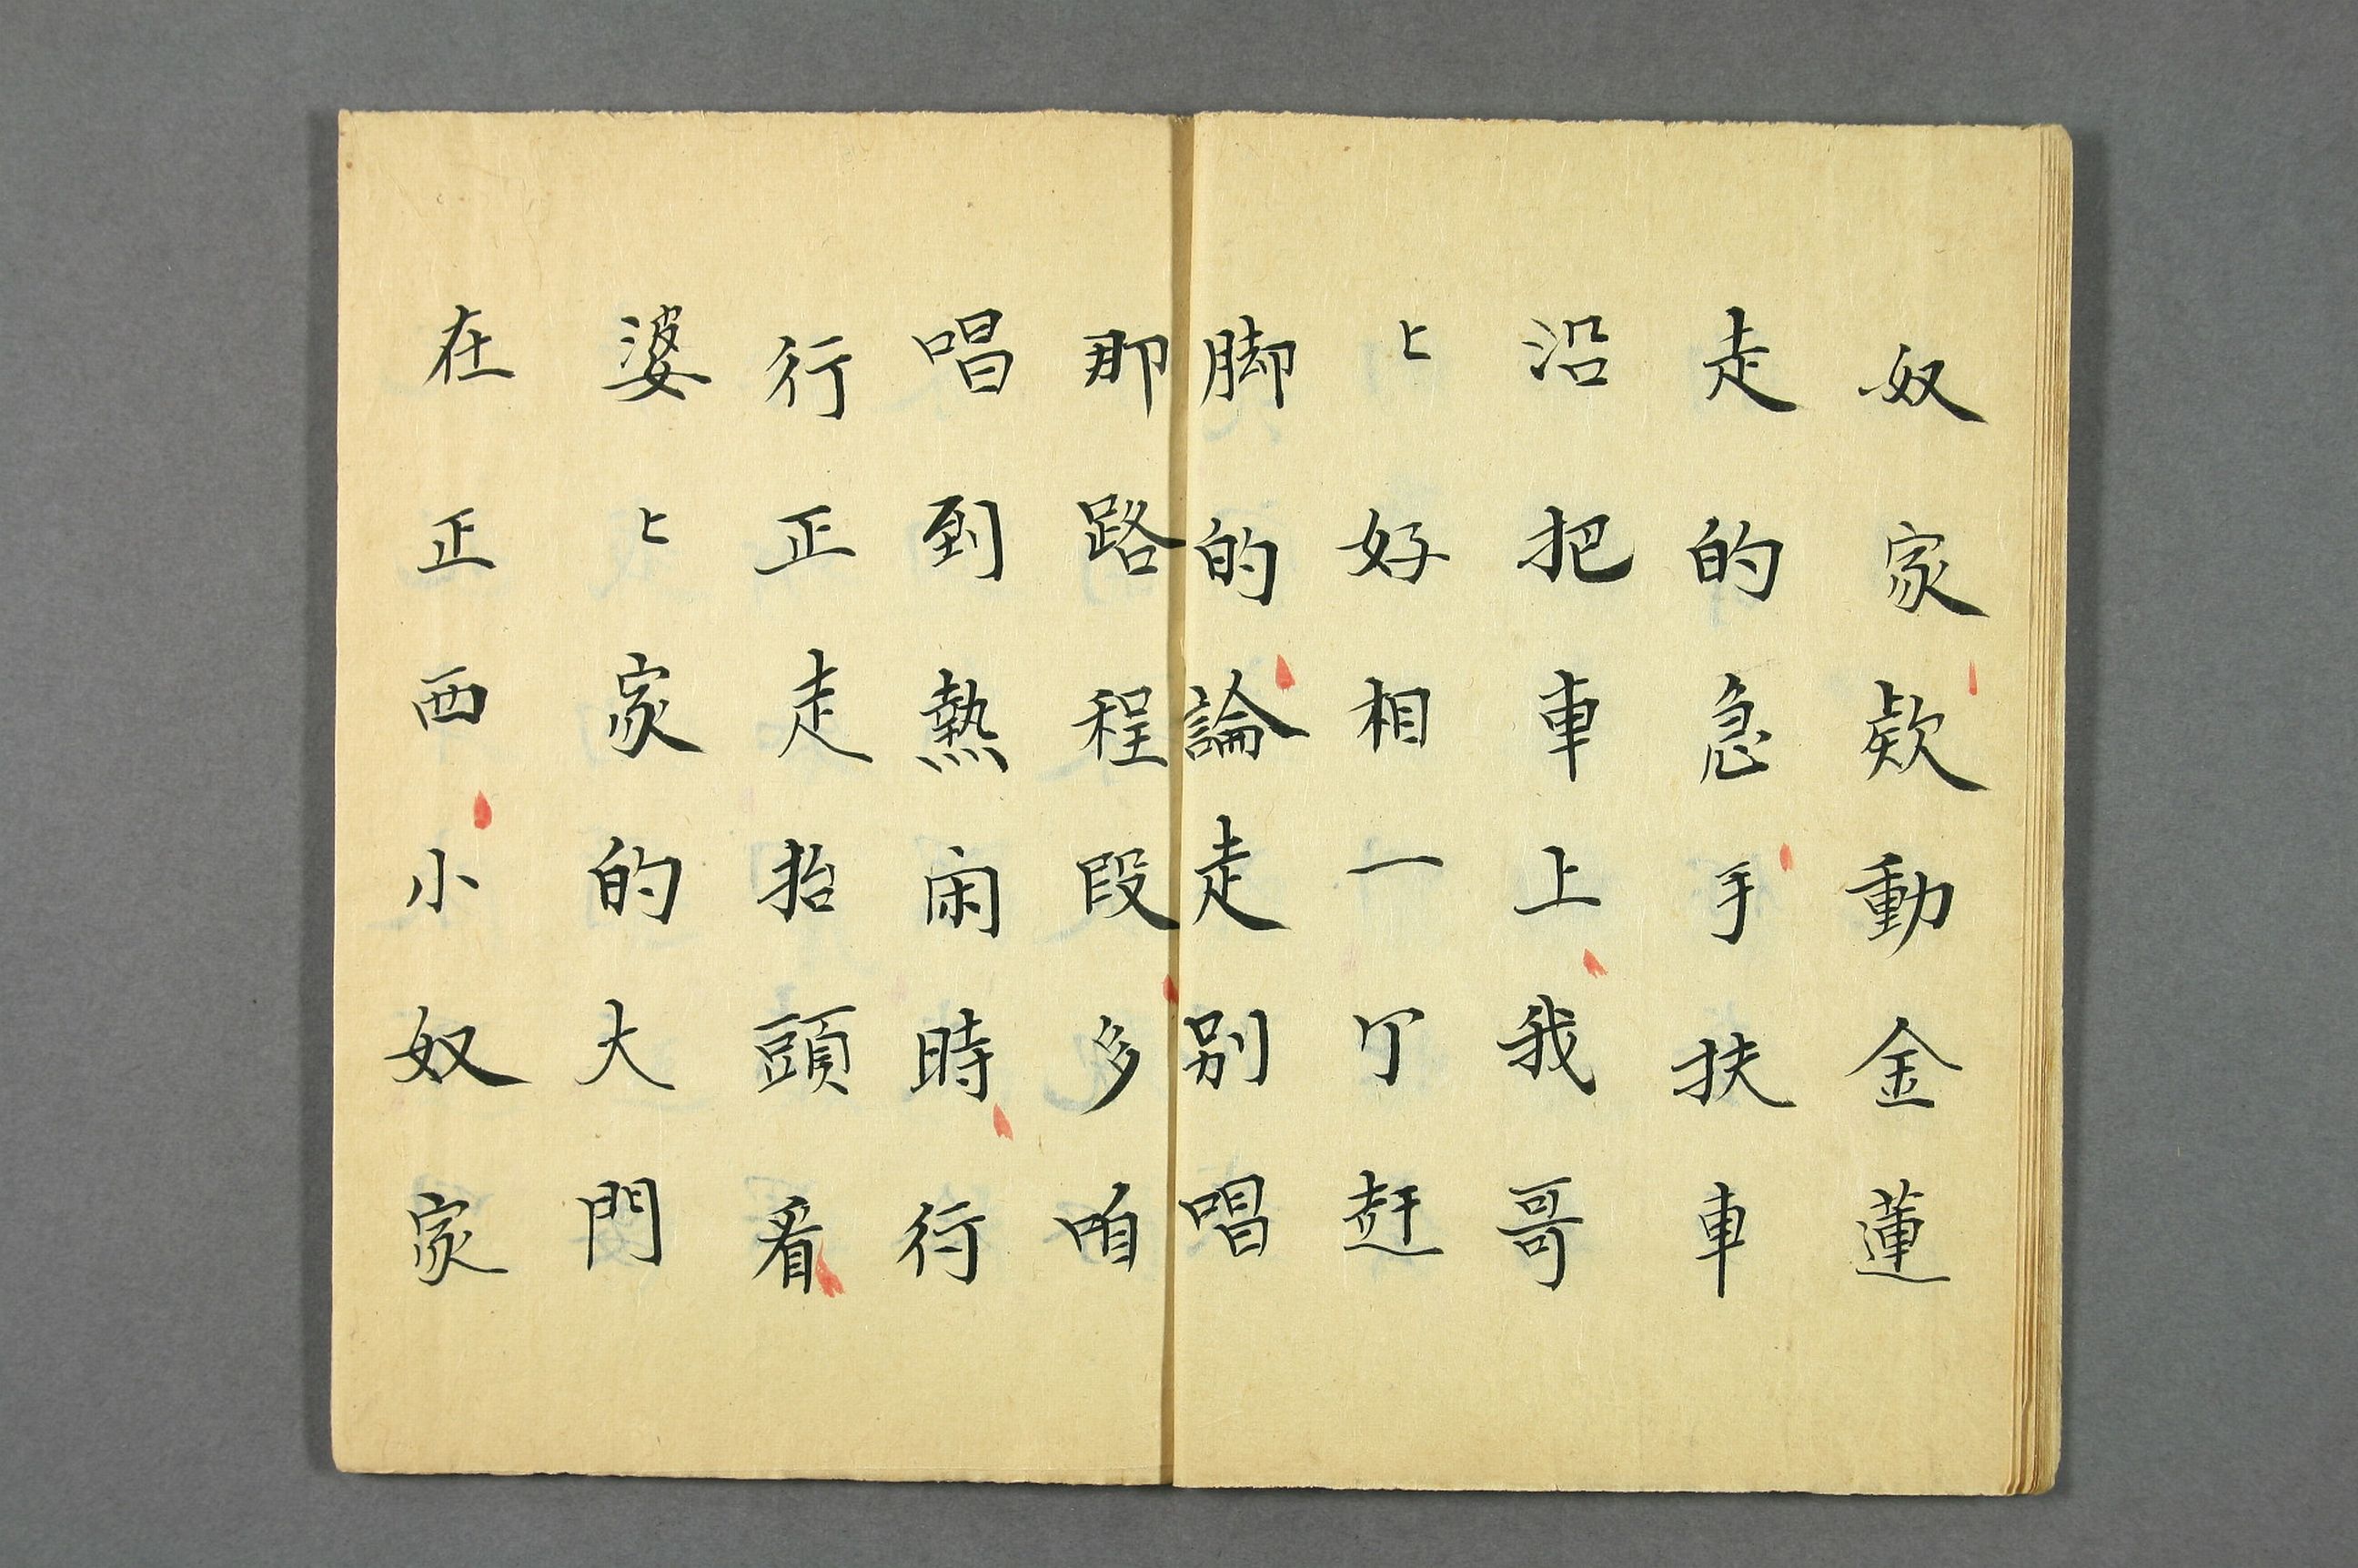 奴家欵動金蓮
走的急手扶車
沿把車上我哥
〻好相一个赶
脚的論走别唱
那路程段多咱
唱到熱闹時行
行正走抬頭看
婆〻家的大門
在正西小奴家